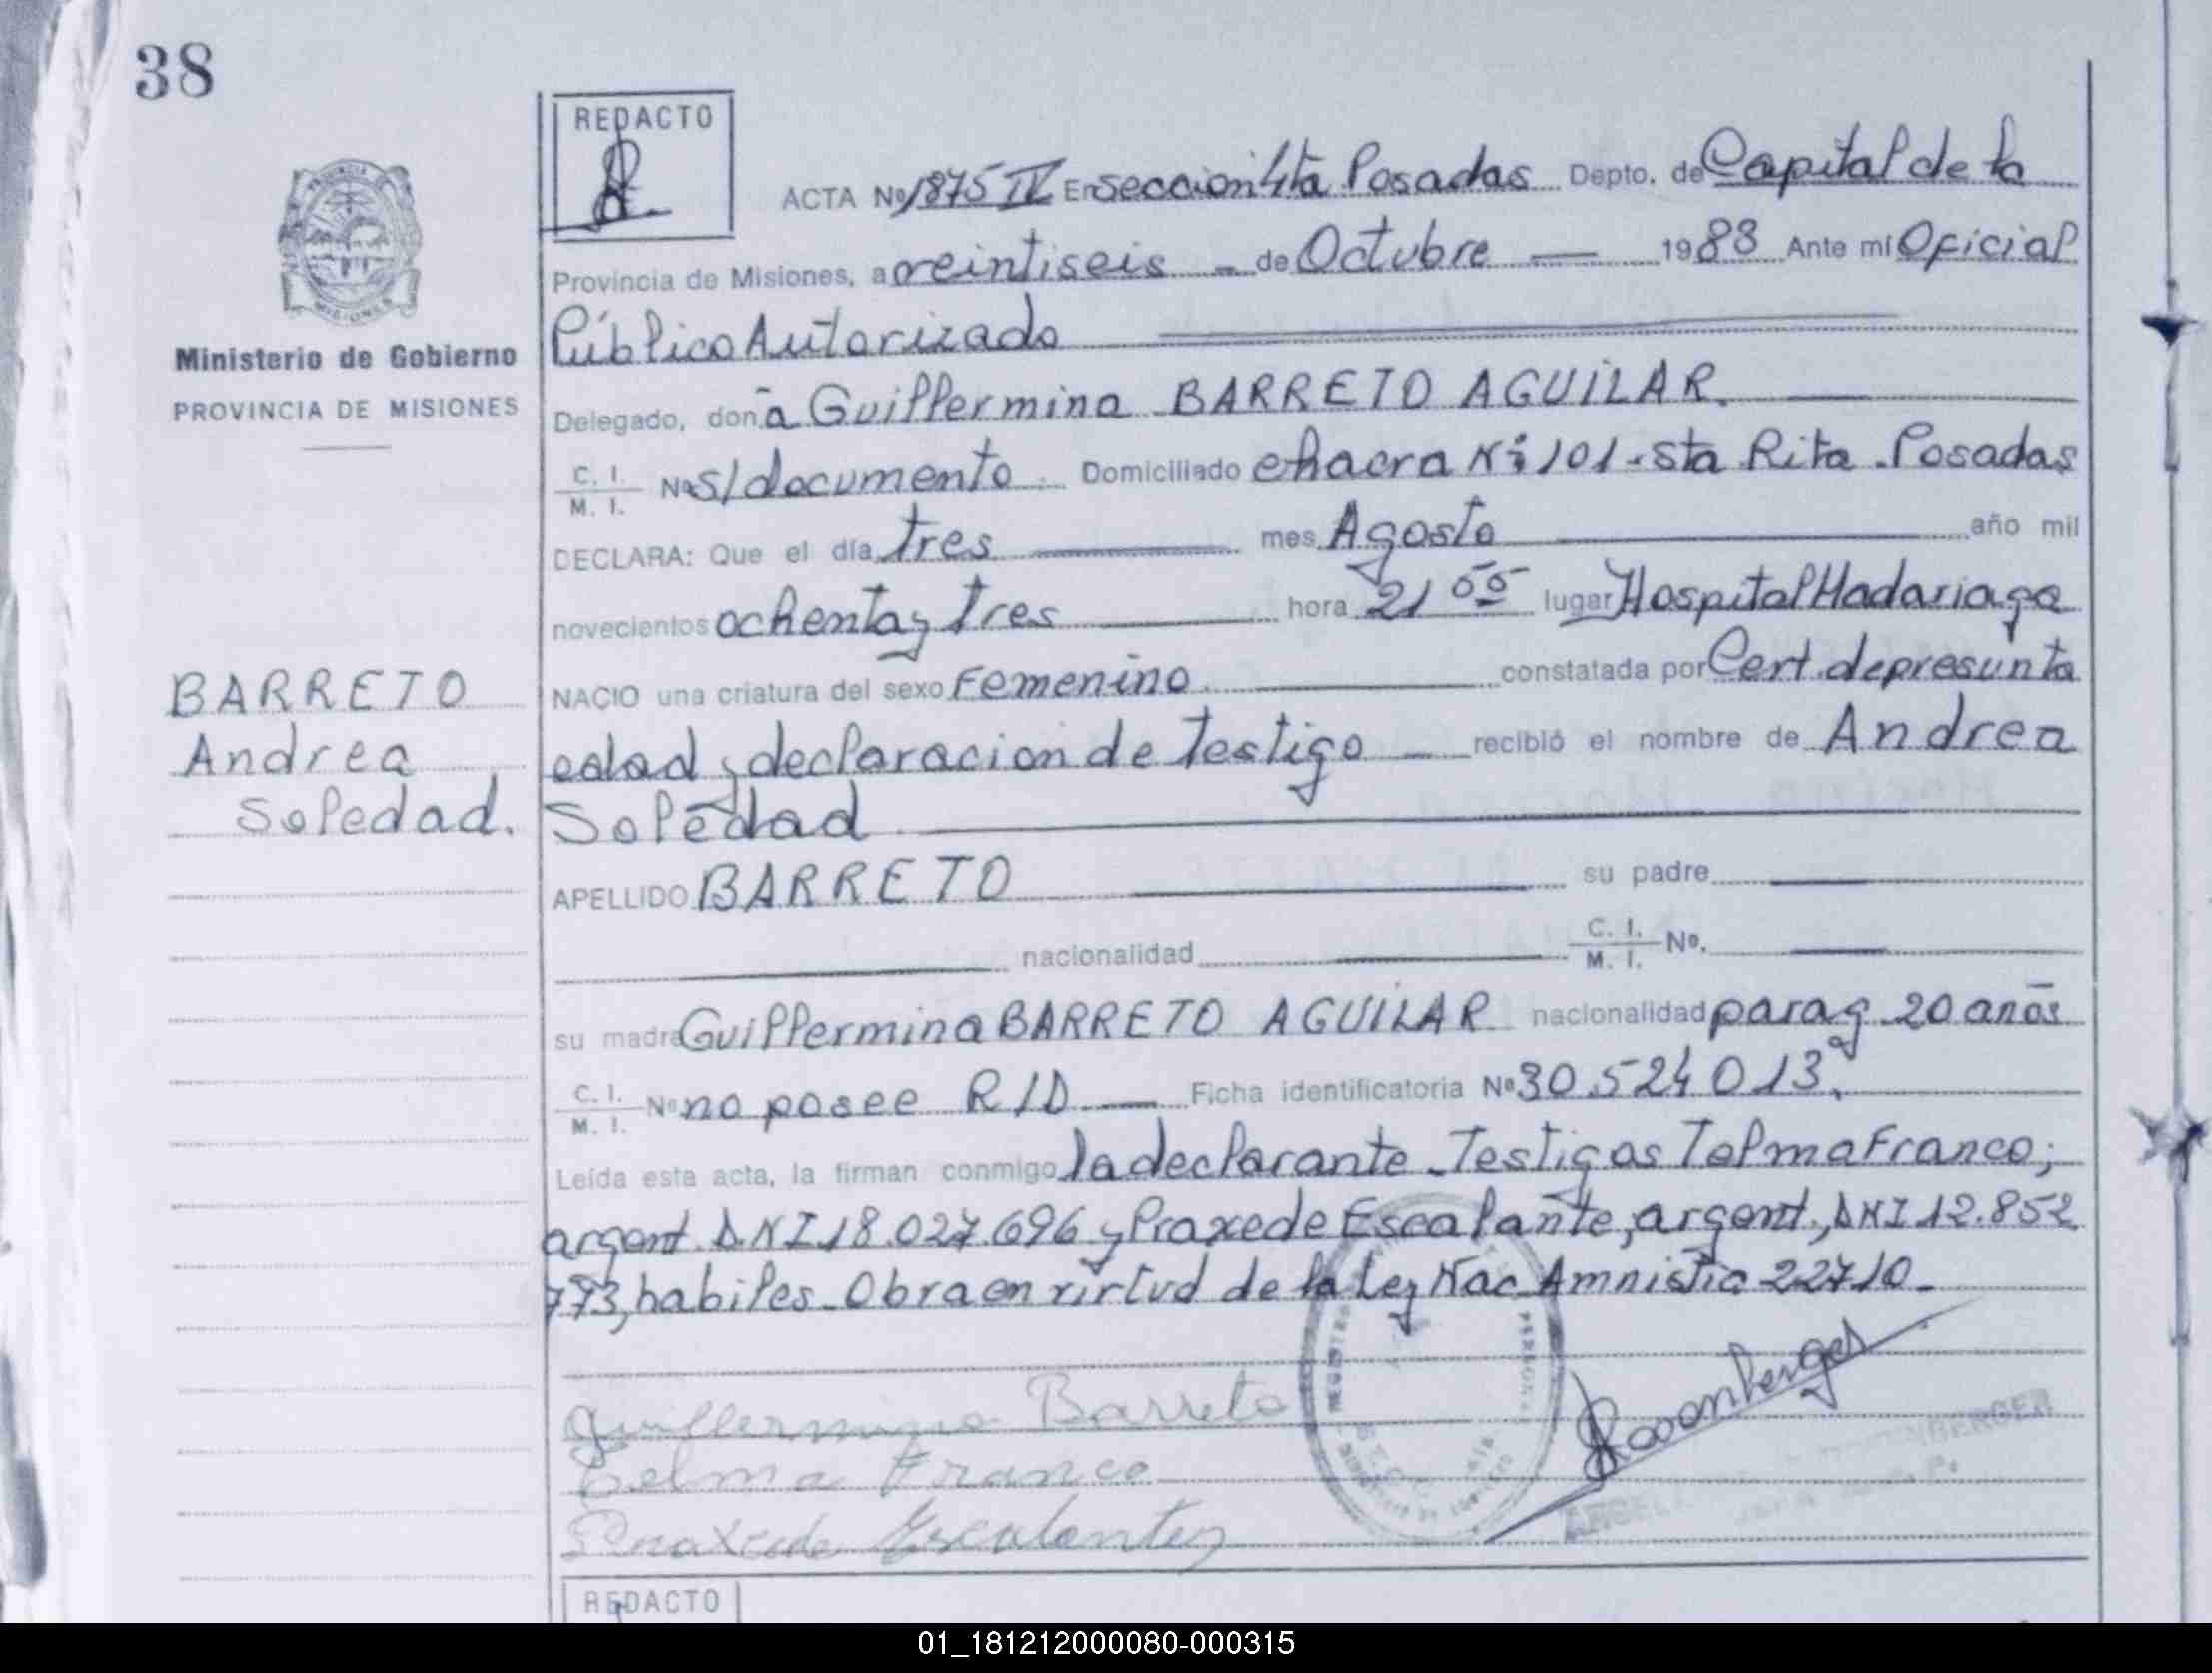 38
REDACTO
ACTA Nº 1875 IV En seccion 4ta Posadas Depto. de Capital de la
Provincia de Misiones, a veintiseis - de Octubre — 1988 Ante mí Oficial
Público Autorizado
Ministerio de Gobierno
PROVINCIA DE MISIONES
Delegado, don a Guillermina BARRETO AGUILAR.
C. I.
M. I.
Nº s/documento. Domiciliado chacra Nº 101. Sta Rita. Posadas
DECLARA: Que el día tres mes Agosto año mil
novecientos ochenta y tres hora 21 00 lugar Hospital Madariaga
NACIO una criatura del sexo Femenino. constatada por Cert. de presunta
edad y declaracion de Testigo — recibió el nombre de Andrea
Soledad
BARRETO
Andrea
Soledad.
APELLIDO BARRETO su padre
nacionalidad C. I.
M. I. Nº.
su madre Guillermina BARRETO AGUILAR nacionalidad parag 20 años
C. I.
M. I.
Nº no posee R/D — Ficha identificatoria Nº 30.524.013.
Leída esta acta, la firman conmigo la declarante. Testigos Telma Franco;
argent. DNI 18.027.696 y Praxede Escalante, argent., DNI 12.852
773, habiles. Obra en virtud de la Ley Nac Amnistia 22710.
Guillermina Barreto
Telma Franco
Praxede Escalante
REDACTO
01_181212000080-000315